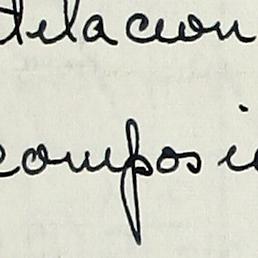 telacion
composi